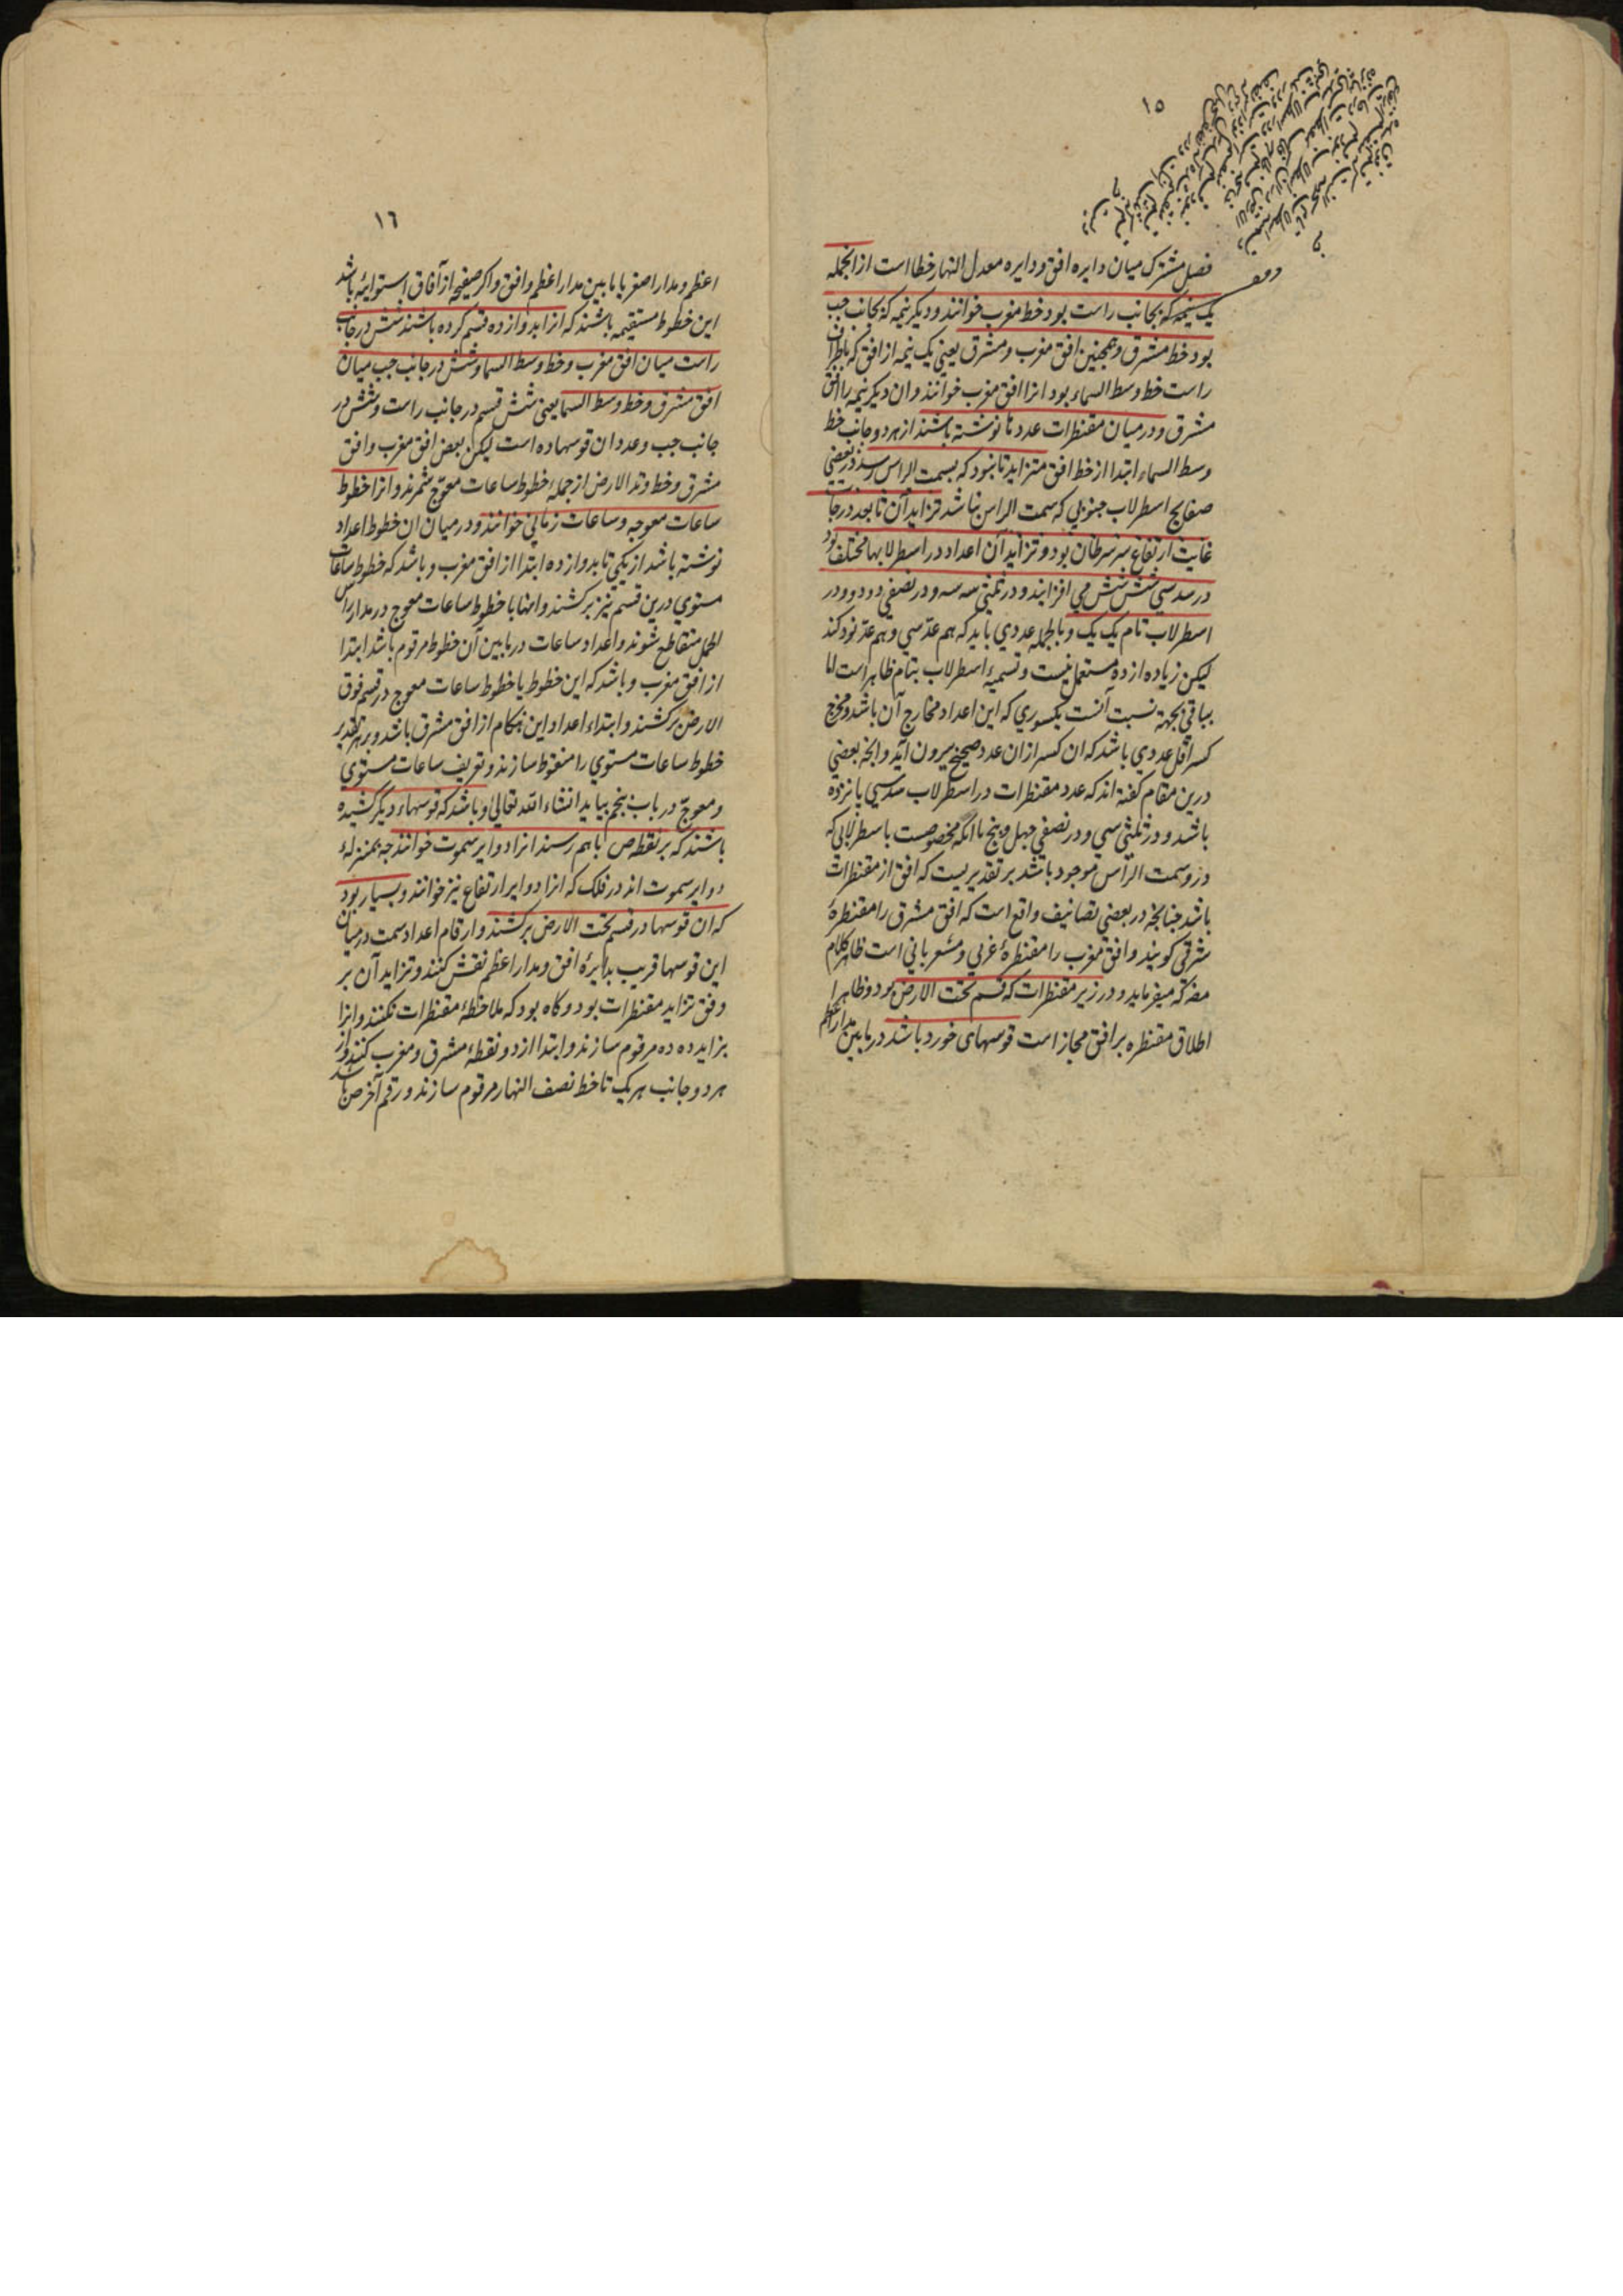 ١٥
فصل مشترک میان دایره افق و دایره معدل النهار خطا است از انجمله
یک نیمه که بجانب راست بود خط مغرب خوانند و دیگر نیمه که بجانب چپ
بود خط مشرق و همچنین افق مغرب و مشرق یعنی یک نیمه از افق که باطراف
راست خط وسط السماء بود انرا افق مغرب خوانند وان دیگر نیمه را افق
مشرق و در میان مقنطرات عددها نوشته باشند از هر دو جانب خط
وسط السماء ابتدا از خط افق متزاید تا بنود که بسمت الراس رسد در بعضی
صفایح اسطرلاب جنوبی که سمت الراس نباشد تزاید آن تا بعدد درجات
غایت ارتفاع سر سرطان بود و تزاید آن اعداد در اسطرلابها مختلف بود
در سدسی شش شش می افزایند و در ثلثی سه سه و در نصفی دو دو و در
اسطرلاب تام یک یک و بالجمله عددی باید که هم عدّ سی و هم عدّ نود کند
لیکن زیاده از ده مستعمل نیست و تسمیهٔ اسطرلاب بتام ظاهر است اما
بباقی بجهة نسبت آنست بکسوری که این اعداد مخارج آن باشد و مخرج
کسر اقل عددی باشد که ان کسر ازان عدد صحیح بیرون آید و انچه بعضی
درین مقام کفته اند که عدد مقنطرات در اسطرلاب سدسی پانزده
باشد و در ثلثی سی و در نصفی چهل و پنج با انکه مخصوصست باسطرلابی که
درو سمت الرأس موجود باشد بر تقدیریست که افق از مقنطرات
باشد چنانچه در بعضی تصانیف واقع است که افق مشرق را مقنطرهٔ
شرقی کویند وافق مغرب را مقنطرهٔ غربی و مشعر باینی است ظاهر کلام
مصه که میفرماید و در زیر مقنطرات که قسم تحت الارض بود و ظاهرا
اطلاق مقنطره بر افق مجاز است قوسهای خورد باشد در ما بین مدار اعظم
١٦
اعظم و مدار اصغر یا مابین مدار اعظم و افق و اکر صفیحه از آفاق استوائیه باشد
این خطوط مستقیمه باشند که انرا بدوازده قسم کرده باشند شش در جانب
راست میان افق مغرب و خط وسط السما و شش در جانب چپ میان
افق مشرق و خط وسط السما یعنی شش قسم در جانب راست و شش در
جانب چپ و عدد ان قوسها ده است لیکن بعض افق مغرب وافق
مشرق و خط وتد الارض از جملهٔ خطوط ساعات معوّج شمرند وانرا خطوط
ساعات معوجه و ساعات زمانی خوانند و در میان ان خطوط اعداد
نوشته باشد از یکی تا بدوازده ابتدا از افق مغرب و باشد که خطوط ساعات
مستوی درین قسم نیز برکشند وانها با خطوط ساعات معوج در مدار راس
الحمل متقاطع شوند و اعداد ساعات در ما بین آن خطوط مرقوم باشد ابتدا
از افق مغرب و باشد که این خطوط یا خطوط ساعات معوج در قسم فوق
الارض برکشند و ابتداء اعداد این هنکام از افق مشرق باشد و بر هر تقدیر
خطوط ساعات مستوی را منقوط سازند و تعریف ساعات مستوی
و معوجّ در باب پنجم بیاید انشاء الله تعالی و باشد که قوسهاء دیگر کشیده
باشند که بر نقطه ص باهم رسند انرا دوایر سموت خوانند چه بمنزلهٔ
دوایر سموت اند در فلک که انرا دوایر ارتفاع نیز خوانند و بسیار بود
که ان قوسها در قسم تحت الارض برکشند وارقام اعداد سمت در میان
این قوسها قریب بدایرهٔ افق و مدار اعظم نقش کنند و تزاید آن بر
وفق تزاید مقنطرات بود و کاه بود که ملاحظهٔ مقنطرات نکنند وانرا
بزاید ده ده مرقوم سازند و ابتدا از دو نقطهٔ مشرق و مغرب کنند و از
هر دو جانب هر یک تا خط نصف النهار مرقوم سازند و رقم آخر ص باشد